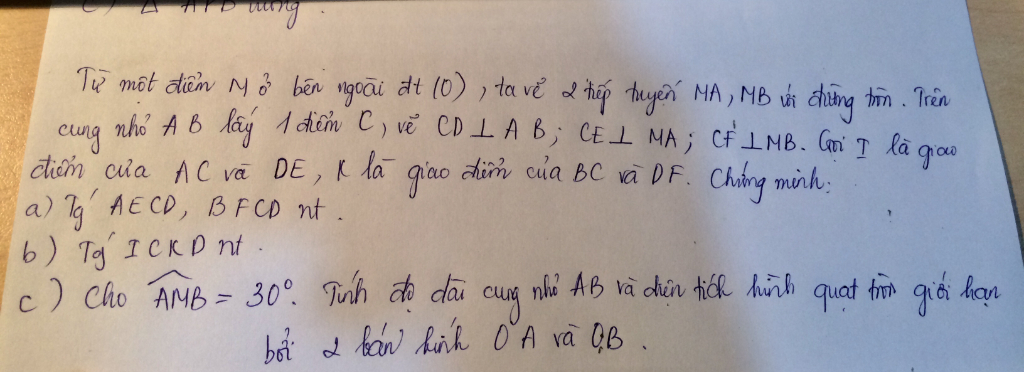 c) Δ APB đúng.
Từ một điểm M ở bên ngoài đt (O), ta vẽ 2 tiếp tuyến MA, MB với đường tròn. Trên
cung nhỏ AB lấy 1 điểm C, vẽ CD ⊥ AB; CE ⊥ MA; CF ⊥ MB. Gọi I là giao
điểm của AC và DE, K là giao điểm của BC và DF. Chứng minh:
a) Tg AECD, BFCD nt.
b) Tg ICKD nt.
c) Cho \widehat{AMB} = 30°. Tính độ dài cung nhỏ AB và diện tích hình quạt tròn giới hạn
bởi 2 bán kính OA và OB.